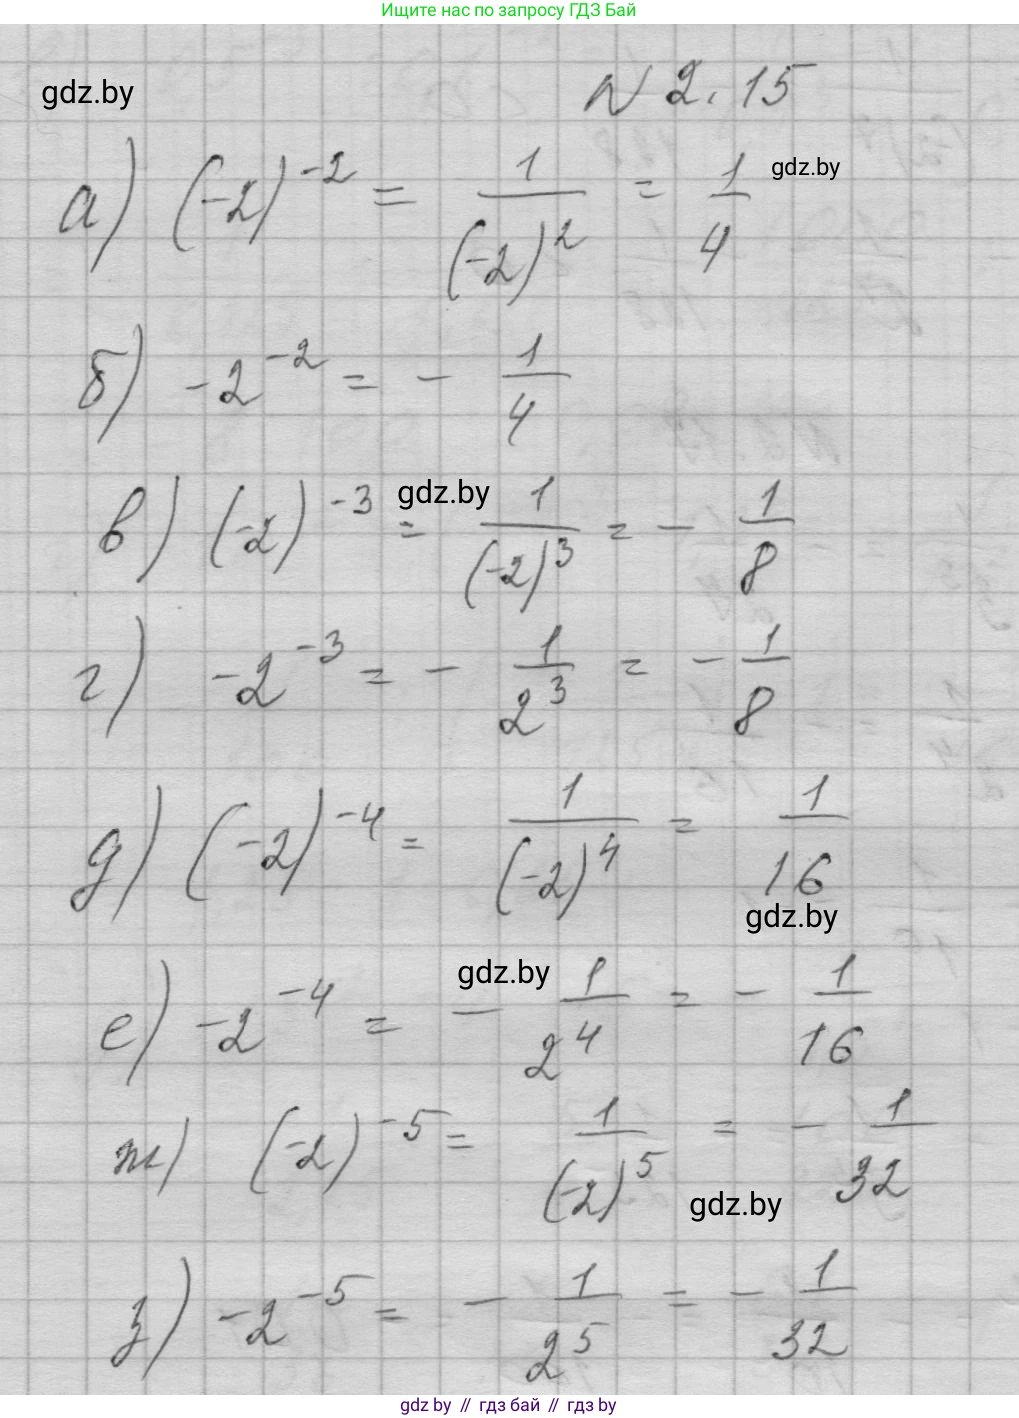 Ищите нас по запросу ГДЗ Бай
gdz.by
№ 2.15
а) (-2)^{-2} = \frac{1}{(-2)^2} = \frac{1}{4}
gdz.by
б) -2^{-2} = - \frac{1}{4}
gdz.by
в) (-2)^{-3} = \frac{1}{(-2)^3} = - \frac{1}{8}
г) -2^{-3} = - \frac{1}{2^3} = - \frac{1}{8}
д) (-2)^{-4} = \frac{1}{(-2)^4} = \frac{1}{16}
gdz.by
gdz.by
е) -2^{-4} = - \frac{1}{2^4} = - \frac{1}{16}
ж) (-2)^{-5} = \frac{1}{(-2)^5} = - \frac{1}{32}
gdz.by
з) -2^{-5} = - \frac{1}{2^5} = - \frac{1}{32}
gdz.by // гдз бай // гдз by